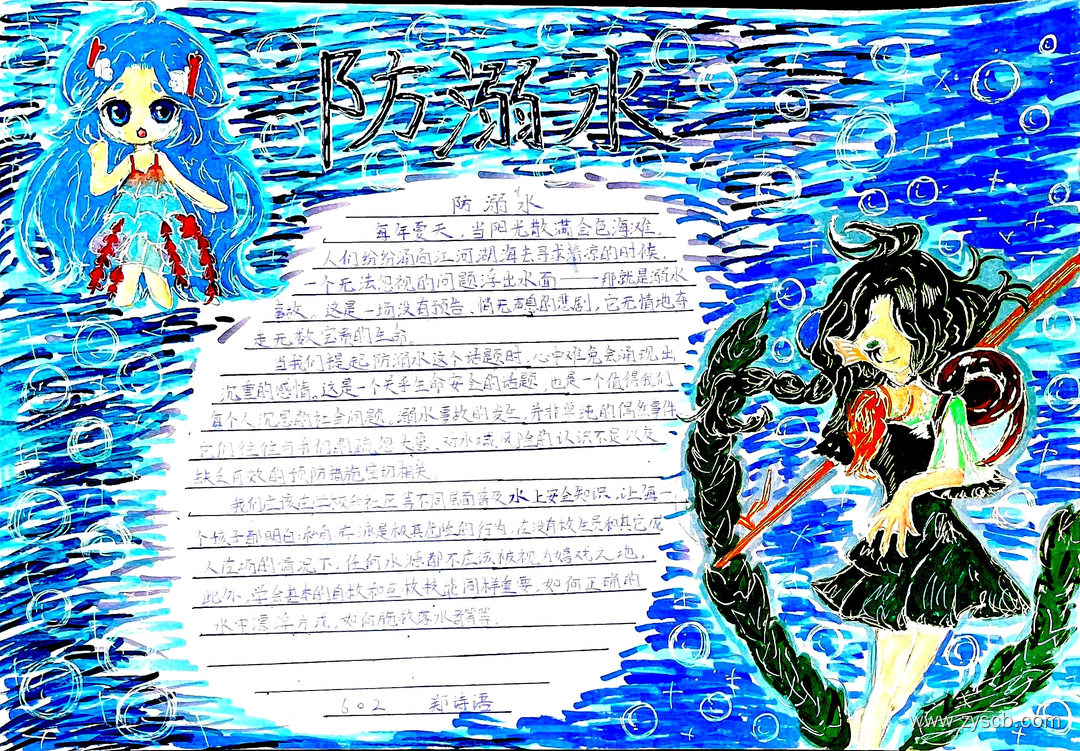 防溺水
防溺水
每年夏天，当阳光散满金色海滩，
人们纷纷涌向江河湖海去寻求清凉的时候，
一个无法忽视的问题浮出水面——那就是溺水
事故。这是一场没有预告、悄无声息的悲剧，它无情地夺
走无数宝贵的生命。
当我们提起防溺水这个话题时，心中难免会涌现出
沉重的感情。这是一个关乎生命安全的话题，也是一个值得我们
每个人沉思的社会问题。溺水事故的发生，并非单纯的偶然事件
它们往往与我们的疏忽大意、对水域风险的认识不足以及
缺乏有效的预防措施密切相关。
我们应该在学校和社区等不同层面普及水上安全知识，让每一
个孩子都明白：私自 是极其危险的行为，在没有救生员和其它成
人在场的情况下，任何水源都不应该被视为嬉戏之地。
此外，学会基本的自救和互救技能同样重要，如何正确的
水中漂浮方式，如何施救落水者等等。
602 郑诗语
www.zyscb.com